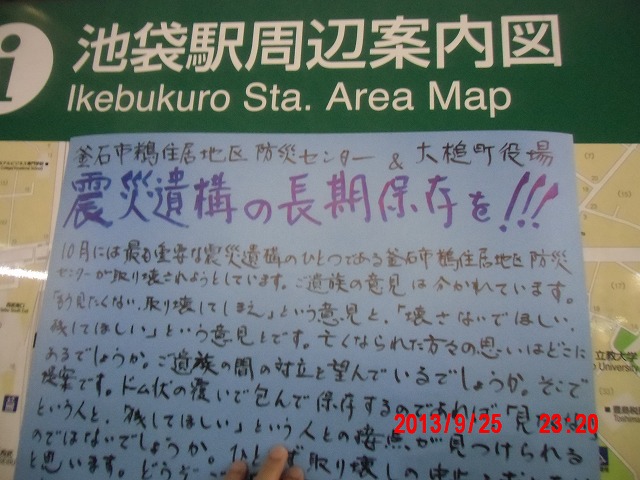 i
池袋駅周辺案内図
Ikebukuro Sta. Area Map
釜石市鵜住居地区防災センター & 大槌町役場
震災遺構の長期保存を!!!
10月には最も重要な震災遺構のひとつである釜石市鵜住居地区防災
センターが取り壊されようとしています。ご遺族の意見は分かれています。
「もう見たくない、取り壊してしまえ」という意見と、「壊さないでほしい、
残してほしい」という意見とです。亡くなられた方々の思いはどこに
あるでしょうか。ご遺族の間の対立を望んでいるでしょうか。そこで
提案です。ドーム状の覆いで包んで保存するのであれば「見たくない」
という人と、「残してほしい」という人との接点が見つけられる
のではないでしょうか。ひとまず取り壊しの中止を
と思います。どうぞ
立教大学
University
2013/9/25 23:20